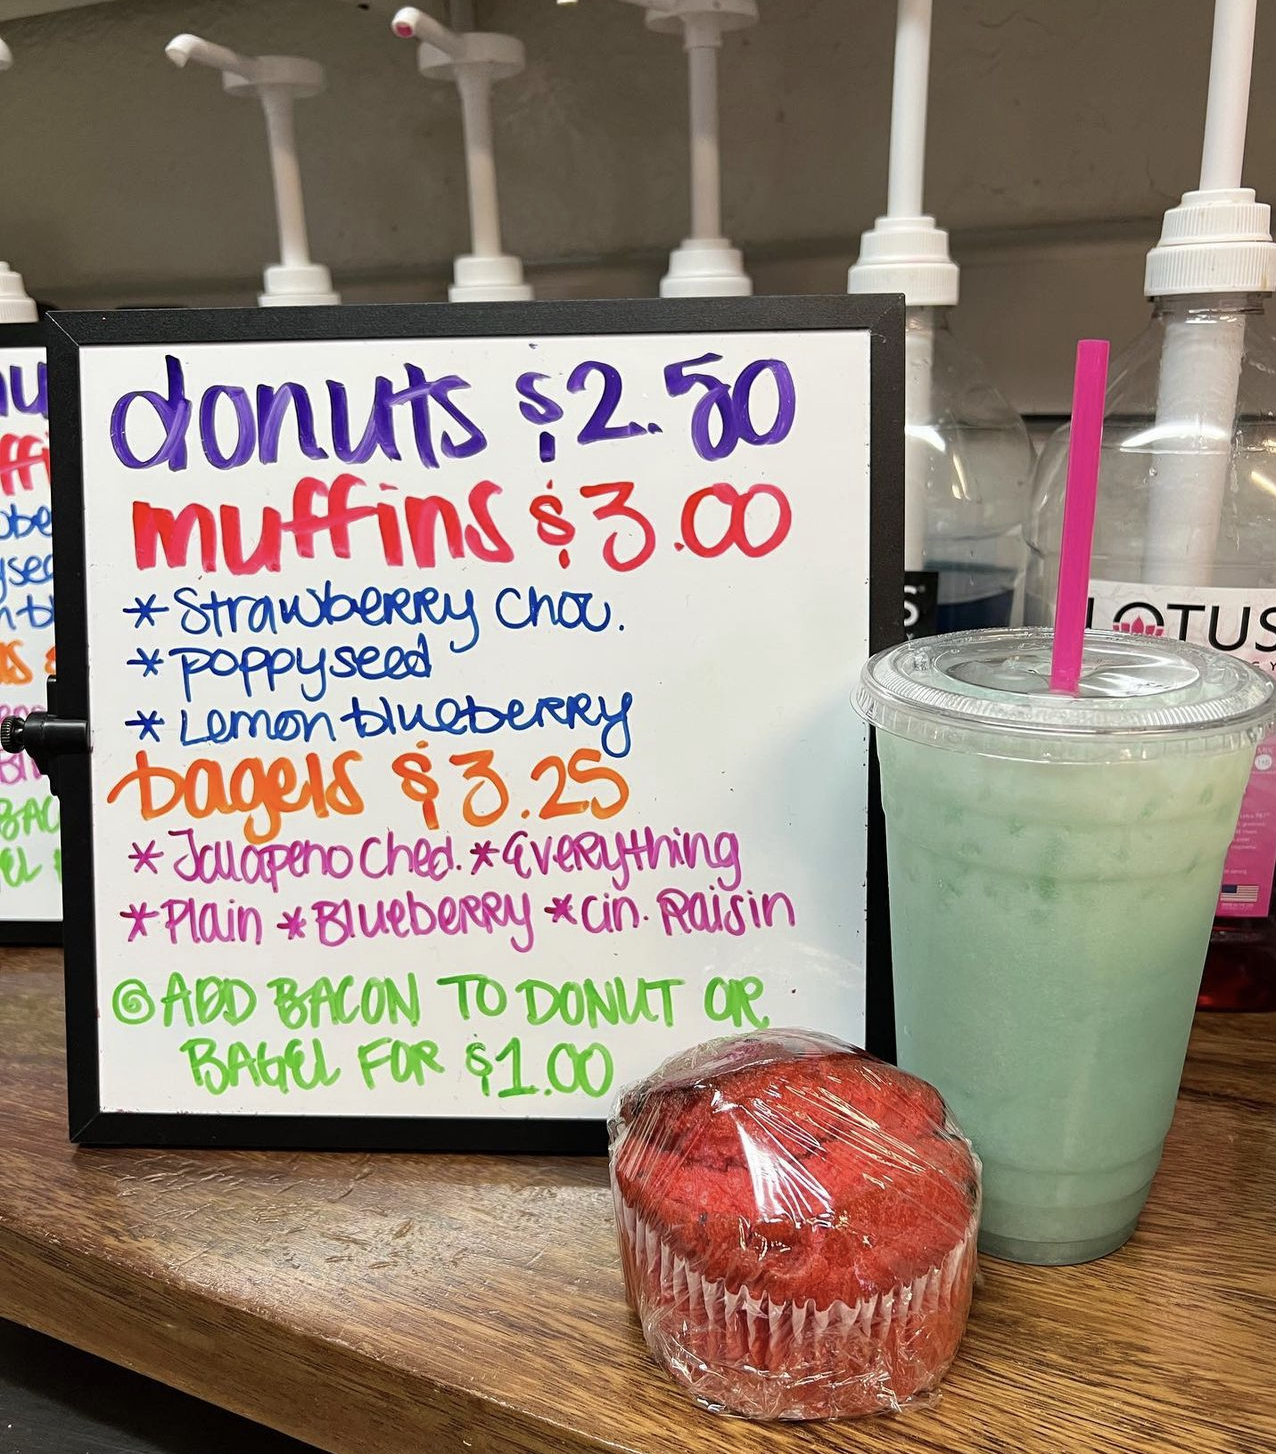 donuts $2.50
muffins $3.00
* Strawberry Choc.
* poppyseed
* Lemon blueberry
bagels $3.25
* Jalapeno Ched. * Everything
* Plain * Blueberry * Cin. Raisin
ADD BACON TO DONUT OR
BAGEL FOR $1.00
LOTUS